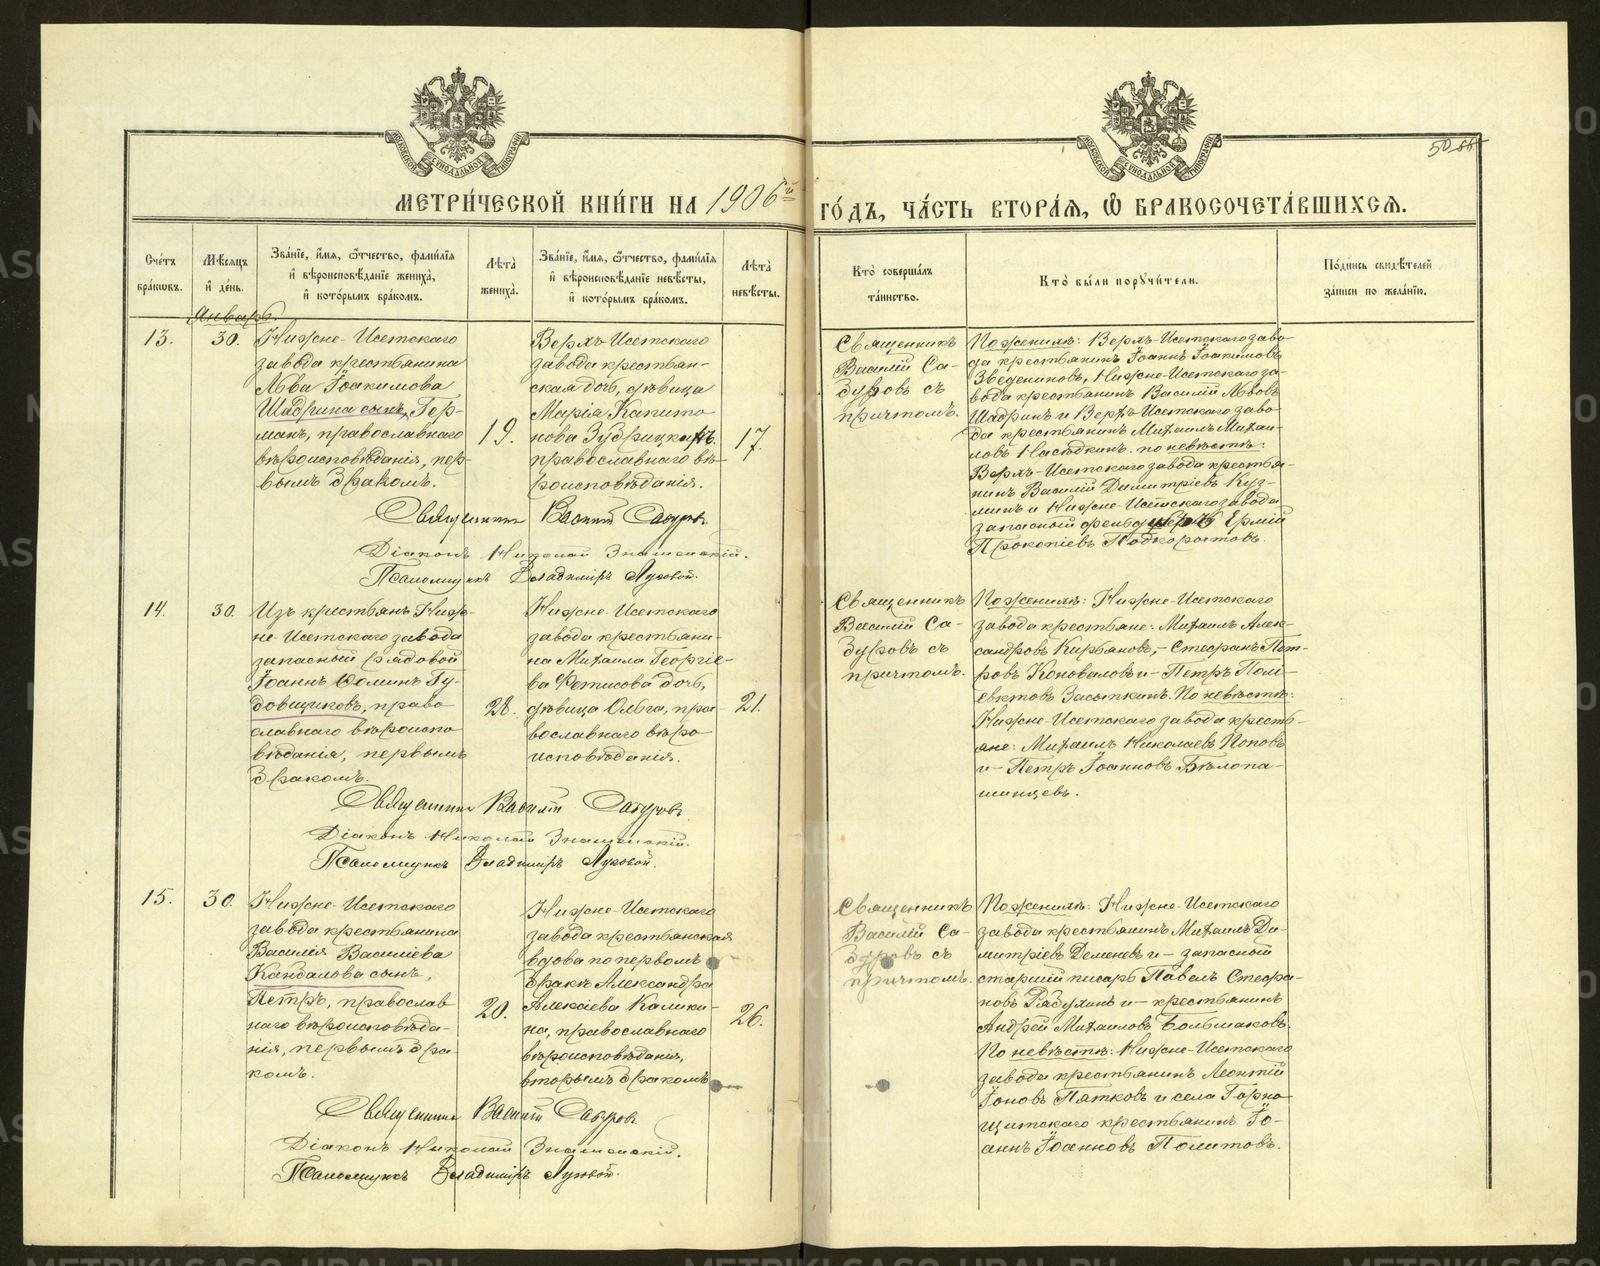 МЕТРИ́ЧЕСКОЙ КНИ́ГИ НА 1906й
ГО́ДЪ, ЧА́СТЬ ВТОРА́Я, Ѡ БРАКОСОЧЕТА́ВШИХСЯ.
Сче́тъ бра́кѡвъ.
Мѣ́сяцъ и҆ де́нь.
Зва́нїе, и҆́мя, ѻ҆́тчество, фами́лїя и҆ вѣроисповѣ́данїе жениха̀, и҆ кото́рымъ бра́комъ.
Лѣ́та жениха̀.
Зва́нїе, и҆́мя, ѻ҆́тчество, фами́лїя и҆ вѣроисповѣ́данїе невѣ́сты, и҆ кото́рымъ бра́комъ.
Лѣ́та невѣ́сты.
Кто̀ соверша́лъ та́инство.
Кто̀ бы́ли порꙋчи́тели.
По́дпись свидѣ́телей за́писи по жела́нїю.
Январь.
13.
30.
Нижне-Исетскаго
завода крестьянина
Льва Іоакимова
Шадрина сынъ, Гер-
манъ, православнаго
вѣроисповѣданія, пер-
вымъ бракомъ.
19.
Верхъ-Исетскаго
завода крестьян-
ская дочь, дѣвица
Марія Капито-
нова
православнаго вѣ-
роисповѣданія.
17.
Священникъ
Василій Са-
буровъ съ
причтомъ.
По женихѣ: Верхъ-Исетскаго заво-
да крестьянинъ Іоаннъ Іоакимовъ
Звездинковъ, Нижне-Исетскаго за-
вода крестьянинъ Василій Львовъ
Шадринъ и Верхъ-Исетскаго заво-
да крестьянинъ Михаилъ Михаи-
ловъ Насѣдкинъ. по невѣстѣ:
Верхъ-Исетскаго завода крестья-
нинъ Василій Димитріевъ Куз-
минъ и Нижне-Исетскаго завода
запасный фельдшеръ Ермій
Прокопіевъ Подкорытовъ.
Священникъ Василій Сабуровъ.
Діаконъ Николай Знаменскій.
Псаломщикъ Владиміръ Луговой.
14.
30.
Изъ крестьянъ Ниж-
не-Исетскаго завода
запасный рядовой
Іоаннъ Ѳоминъ Гу-
довщиковъ, право-
славнаго вѣроиспо-
вѣданія, первымъ
бракомъ.
28.
Нижне-Исетскаго
завода крестьяни-
на Михаила Георгіе-
ва Фетисова дочь,
дѣвица Ольга, пра-
вославнаго вѣро-
исповѣданія.
21.
Священникъ
Василій Са-
буровъ съ
причтомъ.
По женихѣ: Нижне-Исетскаго
завода крестьяне: Михаилъ Алек-
сандровъ Кирьяновъ, - Стефанъ Пет-
ровъ Коноваловъ и - Петръ Поли-
евктовъ Засыпкинъ. По невѣстѣ:
Нижне-Исетскаго завода кресть-
яне: Михаилъ Николаевъ Поповъ
и - Петръ Іоанновъ Бѣлопа-
шинцевъ.
Священникъ Василій Сабуровъ.
Діаконъ Николай Знаменскій.
Псаломщикъ Владиміръ Луговой.
15.
30.
Нижне-Исетскаго
завода крестьянина
Василія Василіева
Кандалова сынъ,
Петръ, православ-
наго вѣроисповѣда-
нія, первымъ бра-
комъ.
20.
Нижне-Исетскаго
завода крестьянская
вдова по первомъ
бракѣ Александра
Алексіева Калики-
на, православнаго
вѣроисповѣданія,
вторымъ бракомъ.
26.
Священникъ
Василій Са-
буровъ съ
причтомъ.
По женихѣ: Нижне-Исетскаго
завода крестьянинъ Михаилъ Ди-
митріевъ Деменевъ и - запасной
старшій писарь Павелъ Стефа-
новъ Рябухинъ и - крестьянинъ
Андрей Михаиловъ Большаковъ.
По невѣстѣ: Нижне-Исетскаго
завода крестьянинъ Леонтій
Іоновъ Пятковъ и села Горно-
щитскаго крестьянинъ Іо-
аннъ Іоанновъ Политовъ.
Священникъ Василій Сабуровъ.
Діаконъ Николай Знаменскій.
Псаломщикъ Владиміръ Луговой.